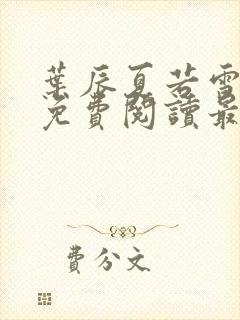 葉辰夏若雪
免費閱讀最
費分文